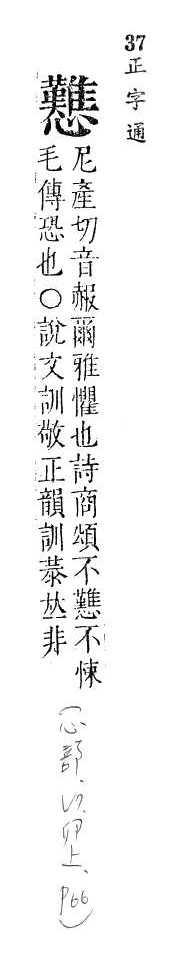 37
正字通
戁
尼產切音赧爾雅懼也詩商頌不戁不悚
毛傳恐也○說文訓敬正韻訓恭𠀤非
(心部、卯上、P66)